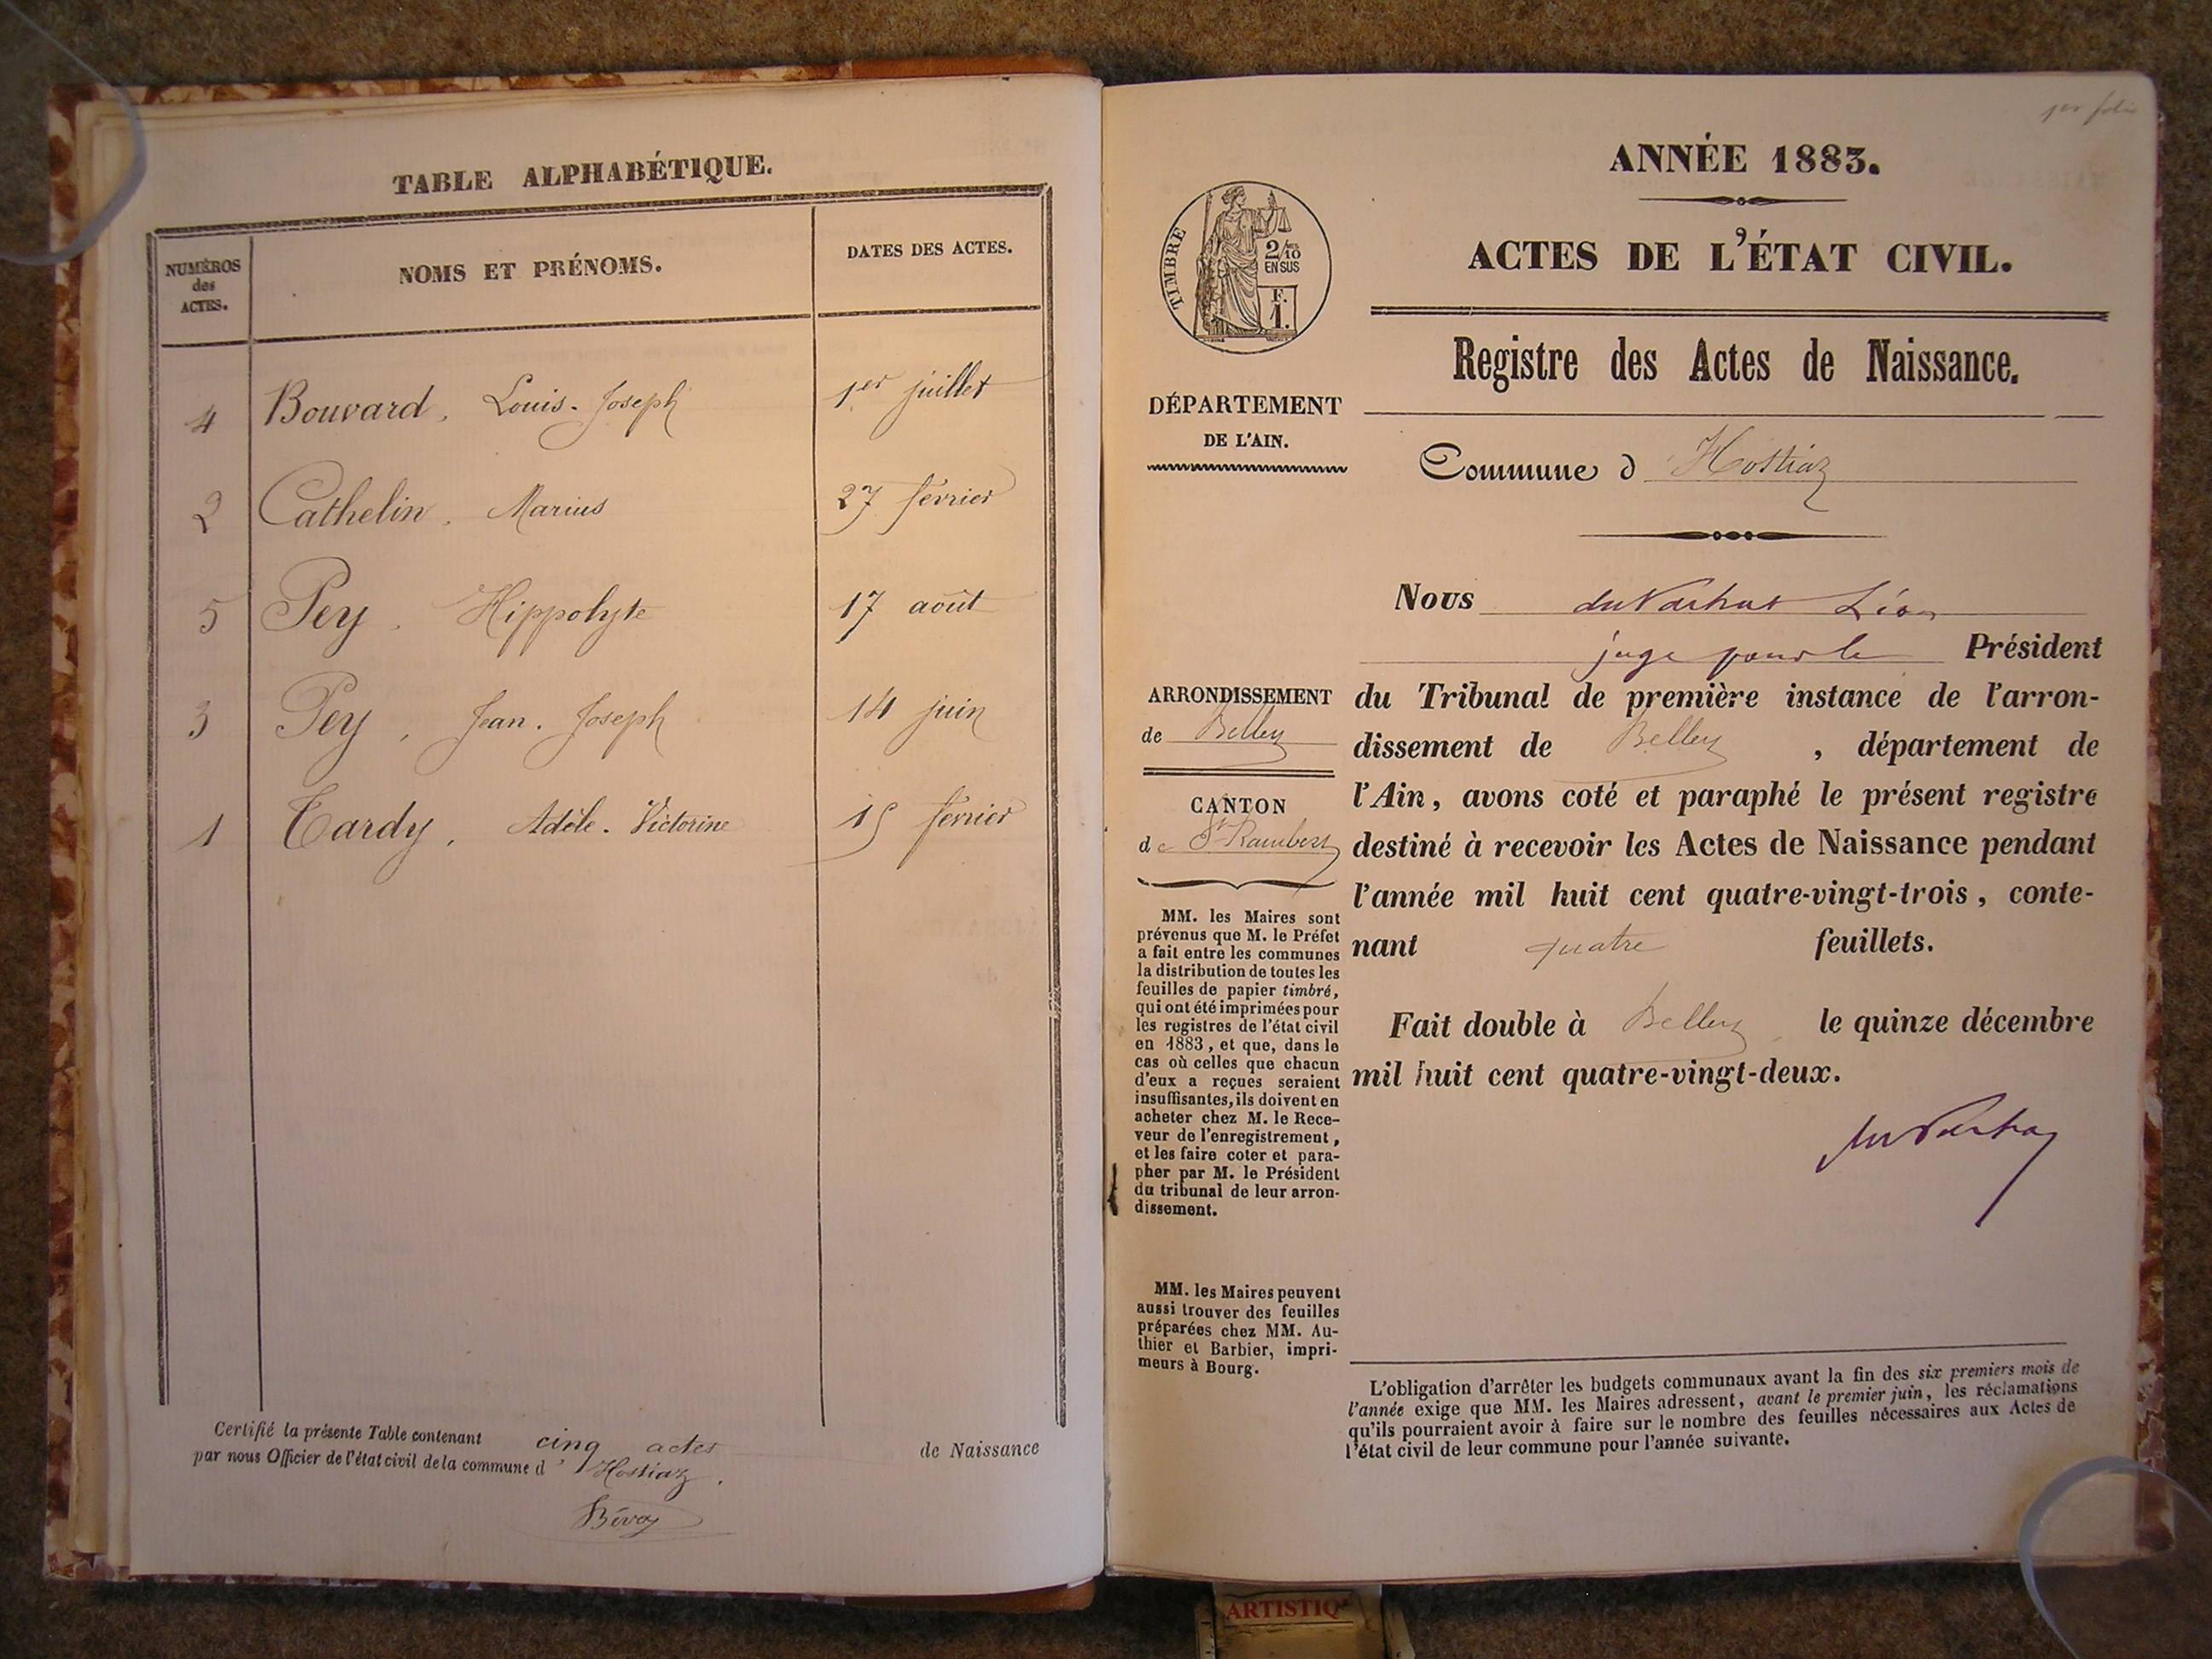 TABLE ALPHABÉTIQUE.
NUMÉROS des ACTES.
NOMS ET PRÉNOMS.
DATES DES ACTES.
4 Bouvard, Louis-Joseph 1er juillet
2 Cathelin, Marius 27 février
5 Pey, Hippolyte 17 août
3 Pey, Jean-Joseph 14 juin
1 Tardy, Adèle-Victorine 15 février
Certifié la présente Table contenant cinq actes de Naissance
par nous Officier de l'état civil de la commune d'Hostiaz.
1er folio
ANNÉE 1883.
ACTES DE L'ÉTAT CIVIL.
Registre des Actes de Naissance.
Commune d Hostiaz
TIMBRE
2/10
EN SUS
F.
1.
DÉPARTEMENT
DE L'AIN.
ARRONDISSEMENT
de Belley
CANTON
de St Rambert
MM. les Maires sont
prévenus que M. le Préfet
a fait entre les communes
la distribution de toutes les
feuilles de papier timbré,
qui ont été imprimées pour
les registres de l'état civil
en 1883, et que, dans le
cas où celles que chacun
d'eux a reçues seraient
insuffisantes, ils doivent en
acheter chez M. le Rece-
veur de l'enregistrement,
et les faire coter et para-
pher par M. le Président
du tribunal de leur arron-
dissement.
MM. les Maires peuvent
aussi trouver des feuilles
préparées chez MM. Au-
thier et Barbier, impri-
meurs à Bourg.
Nous Léon
juge pour le Président
du Tribunal de première instance de l'arron-
dissement de Belley, département de
l'Ain, avons coté et paraphé le présent registre
destiné à recevoir les Actes de Naissance pendant
l'année mil huit cent quatre-vingt-trois, conte-
nant quatre feuillets.
Fait double à Belley le quinze décembre
mil huit cent quatre-vingt-deux.
L'obligation d'arrêter les budgets communaux avant la fin des six premiers mois de
l'année exige que MM. les Maires adressent, avant le premier juin, les réclamations
qu'ils pourraient avoir à faire sur le nombre des feuilles nécessaires aux Actes de
l'état civil de leur commune pour l'année suivante.
ARTISTIQ